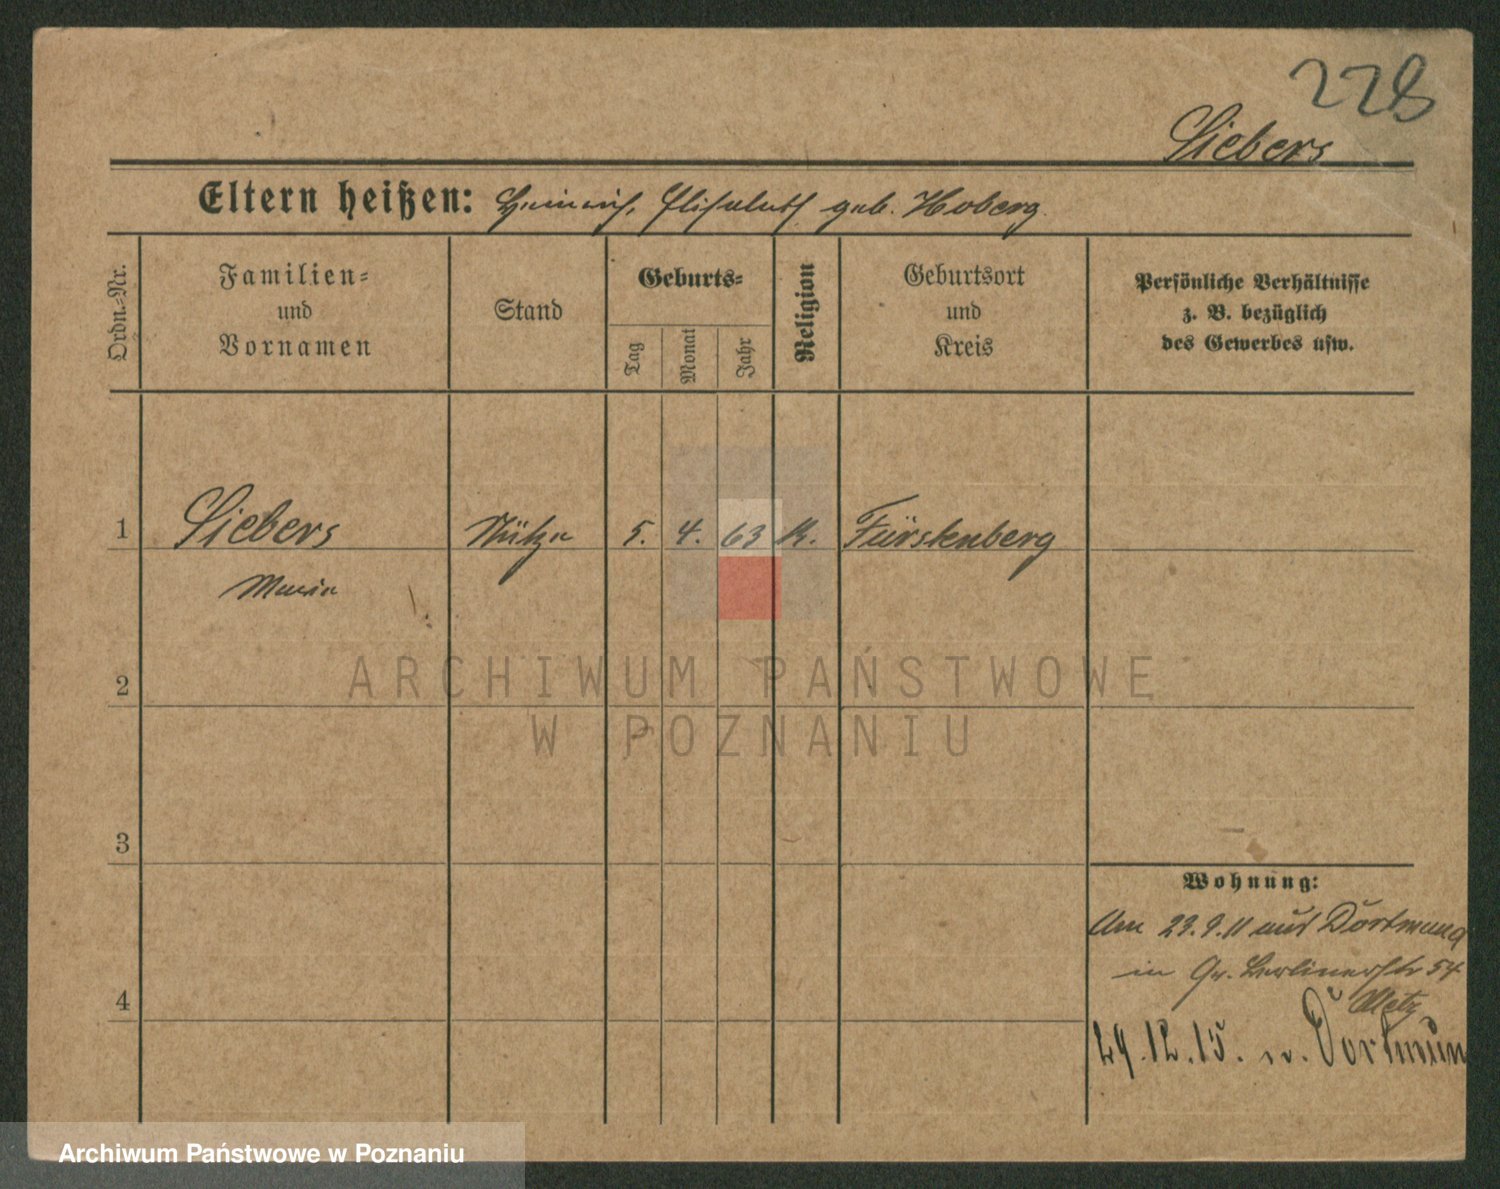 228
Siebers
Eltern heißen: Heinrich, Elisabeth geb. Hoberg.
Ordn.-Nr.
Familien-
und
Vornamen
Stand
Geburts-
Tag
Monat
Jahr
Religion
Geburtsort
und
Kreis
Persönliche Verhältnisse
z. B. bezüglich
des Gewerbes usw.
1 Siebers Stütze 5. 4. 63 K. Fürstenberg
Maria
2
3
4
Wohnung:
Am 23.9.11 aus Dortmund
in Gr. Berlinerstr 54
Metz
29.12.15. n. Dortmun
ARCHIWUM PAŃSTWOWE
W POZNANIU
Archiwum Państwowe w Poznaniu